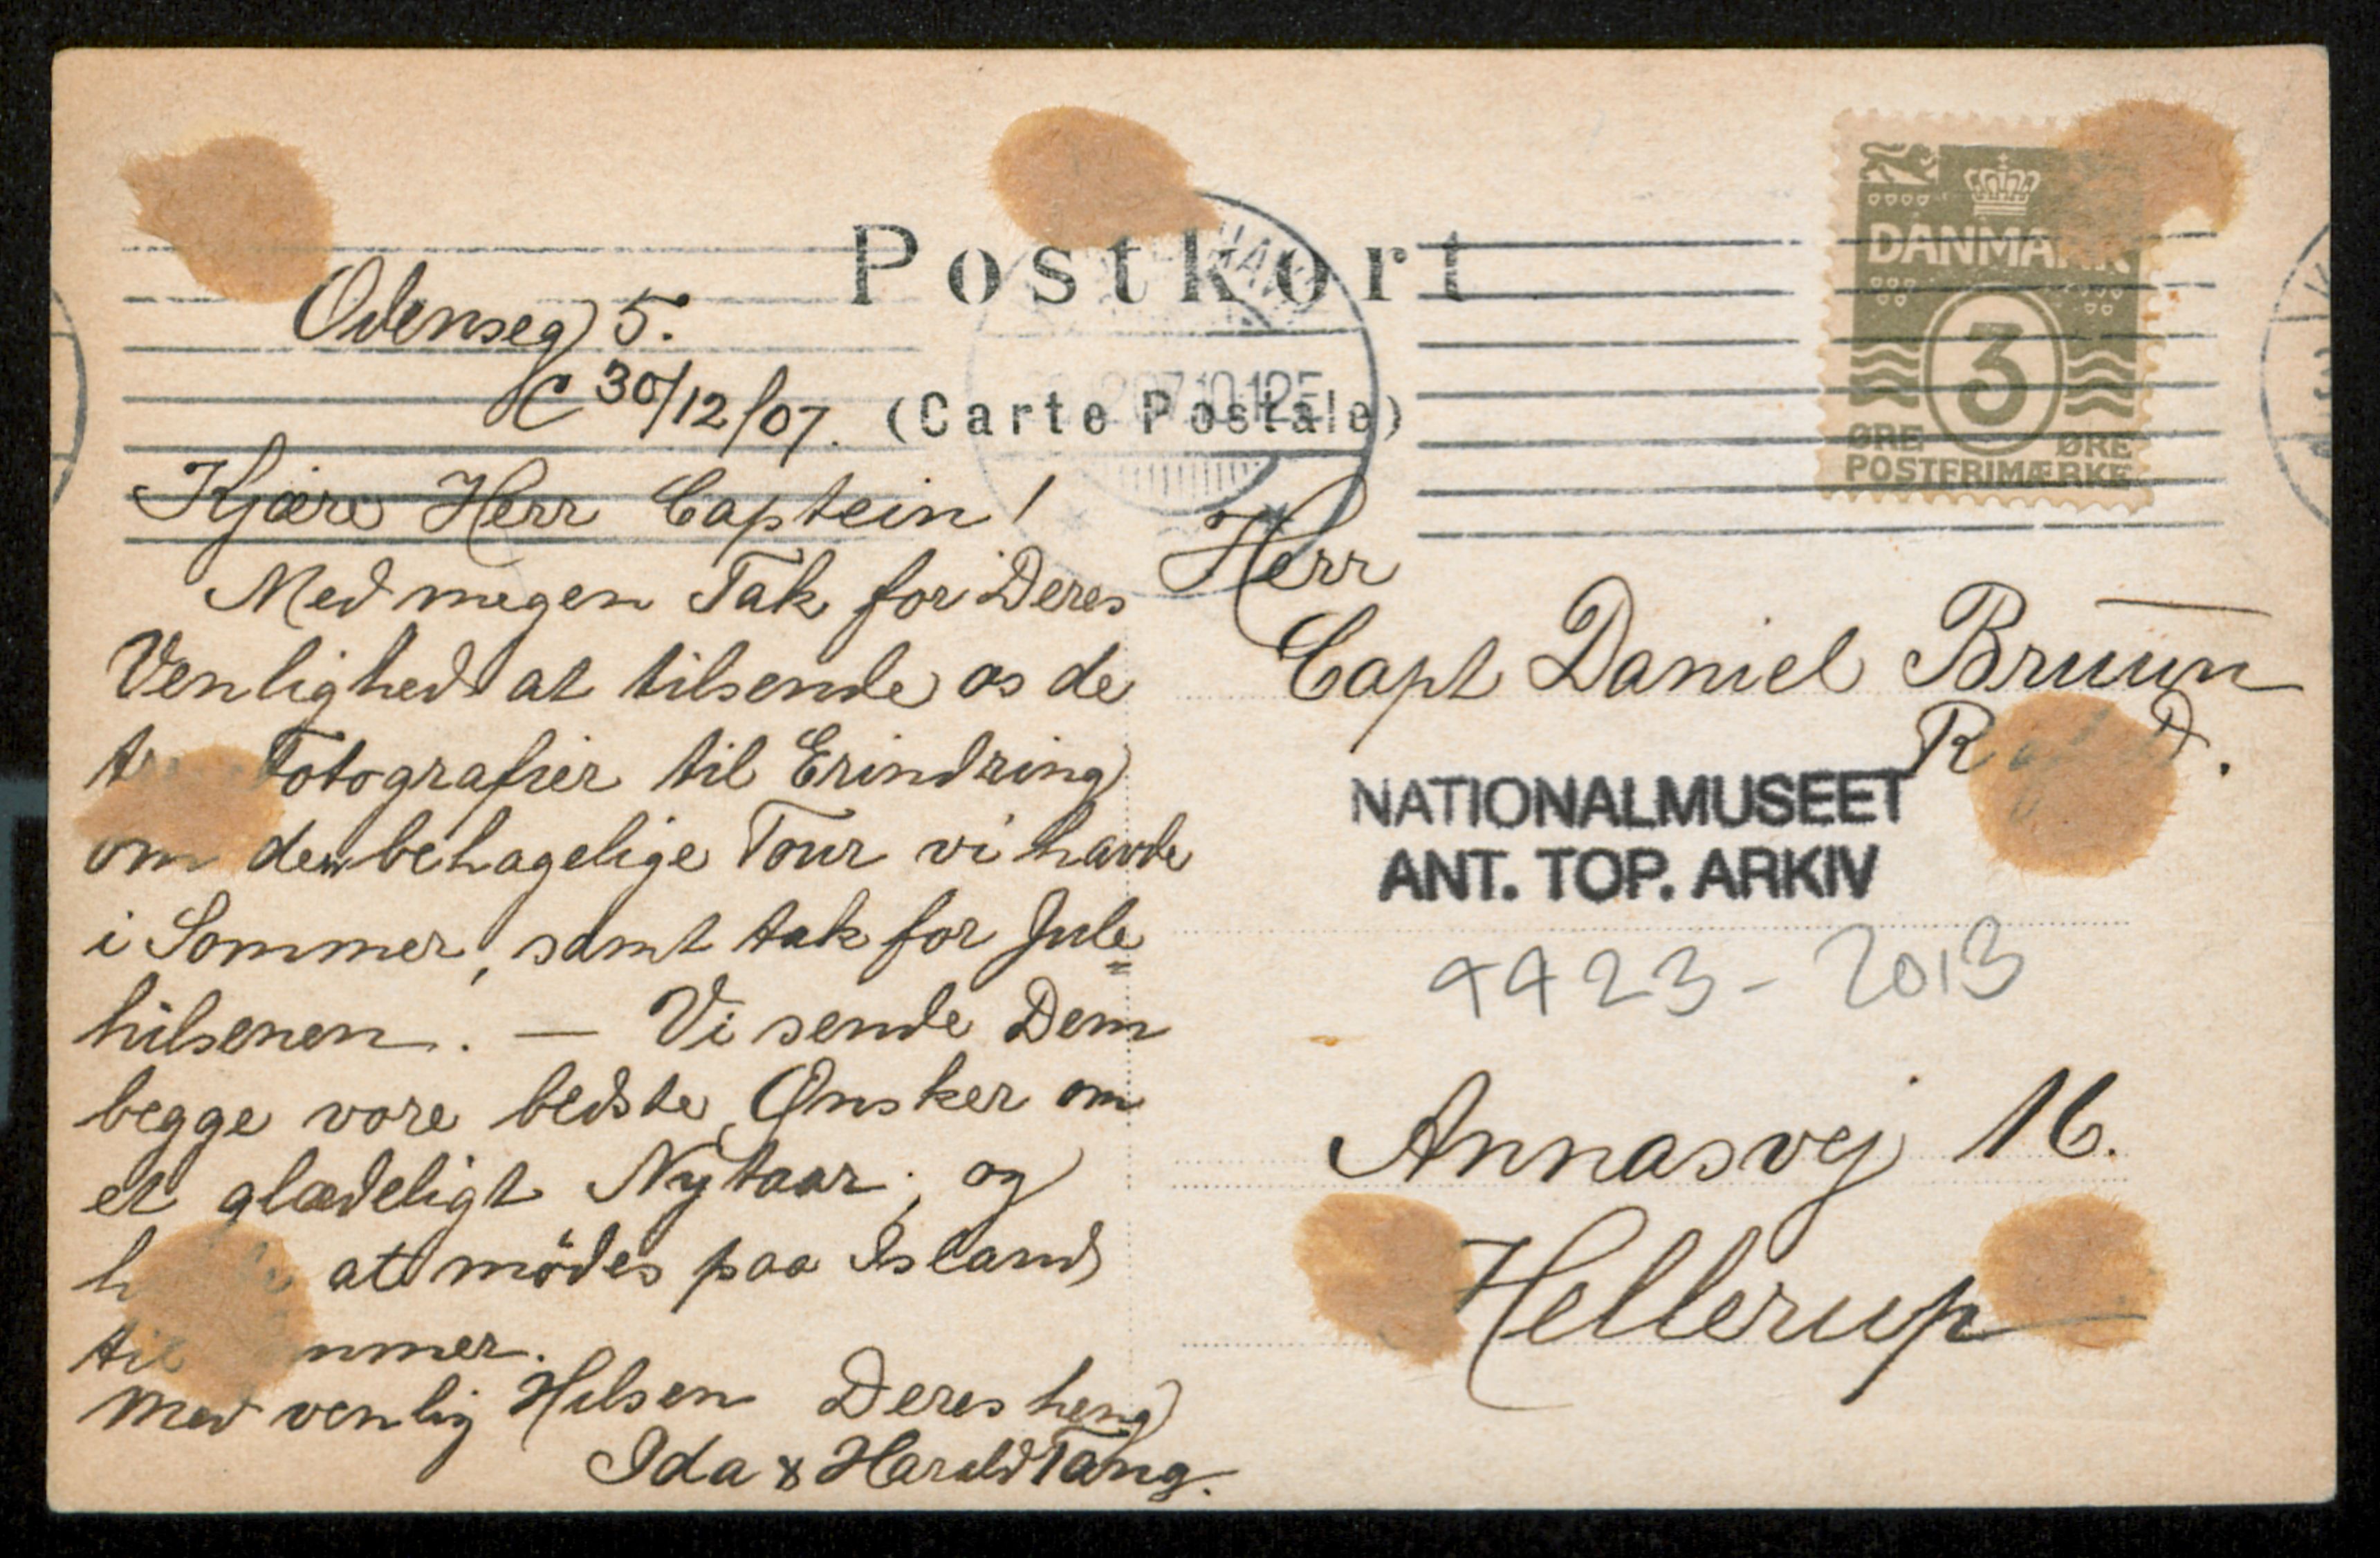 Postkort
(Carte Postale)
DANMARK
3
ØRE ØRE
POSTFRIMÆRKE
Odenseg 5.
30/12/07.
Kjære Herr Captein!
Med megen Tak for Deres
Venlighed at tilsende os de
Fotografier til Erindring
om den behagelige Tour vi havde
i Sommer, samt tak for Jule=
hilsenen. — Vi sende Dem
begge vore bedste Ønsker om
et glædeligt Nytaar; og
at mödes paa Island
til
Med venlig Hilsen Deres heng
Ida & Harald Tang.
Herr
Capt Daniel Bruun
R D.
NATIONALMUSEET
ANT. TOP. ARKIV
4423-2013
Annasvej 16.
Hellerup